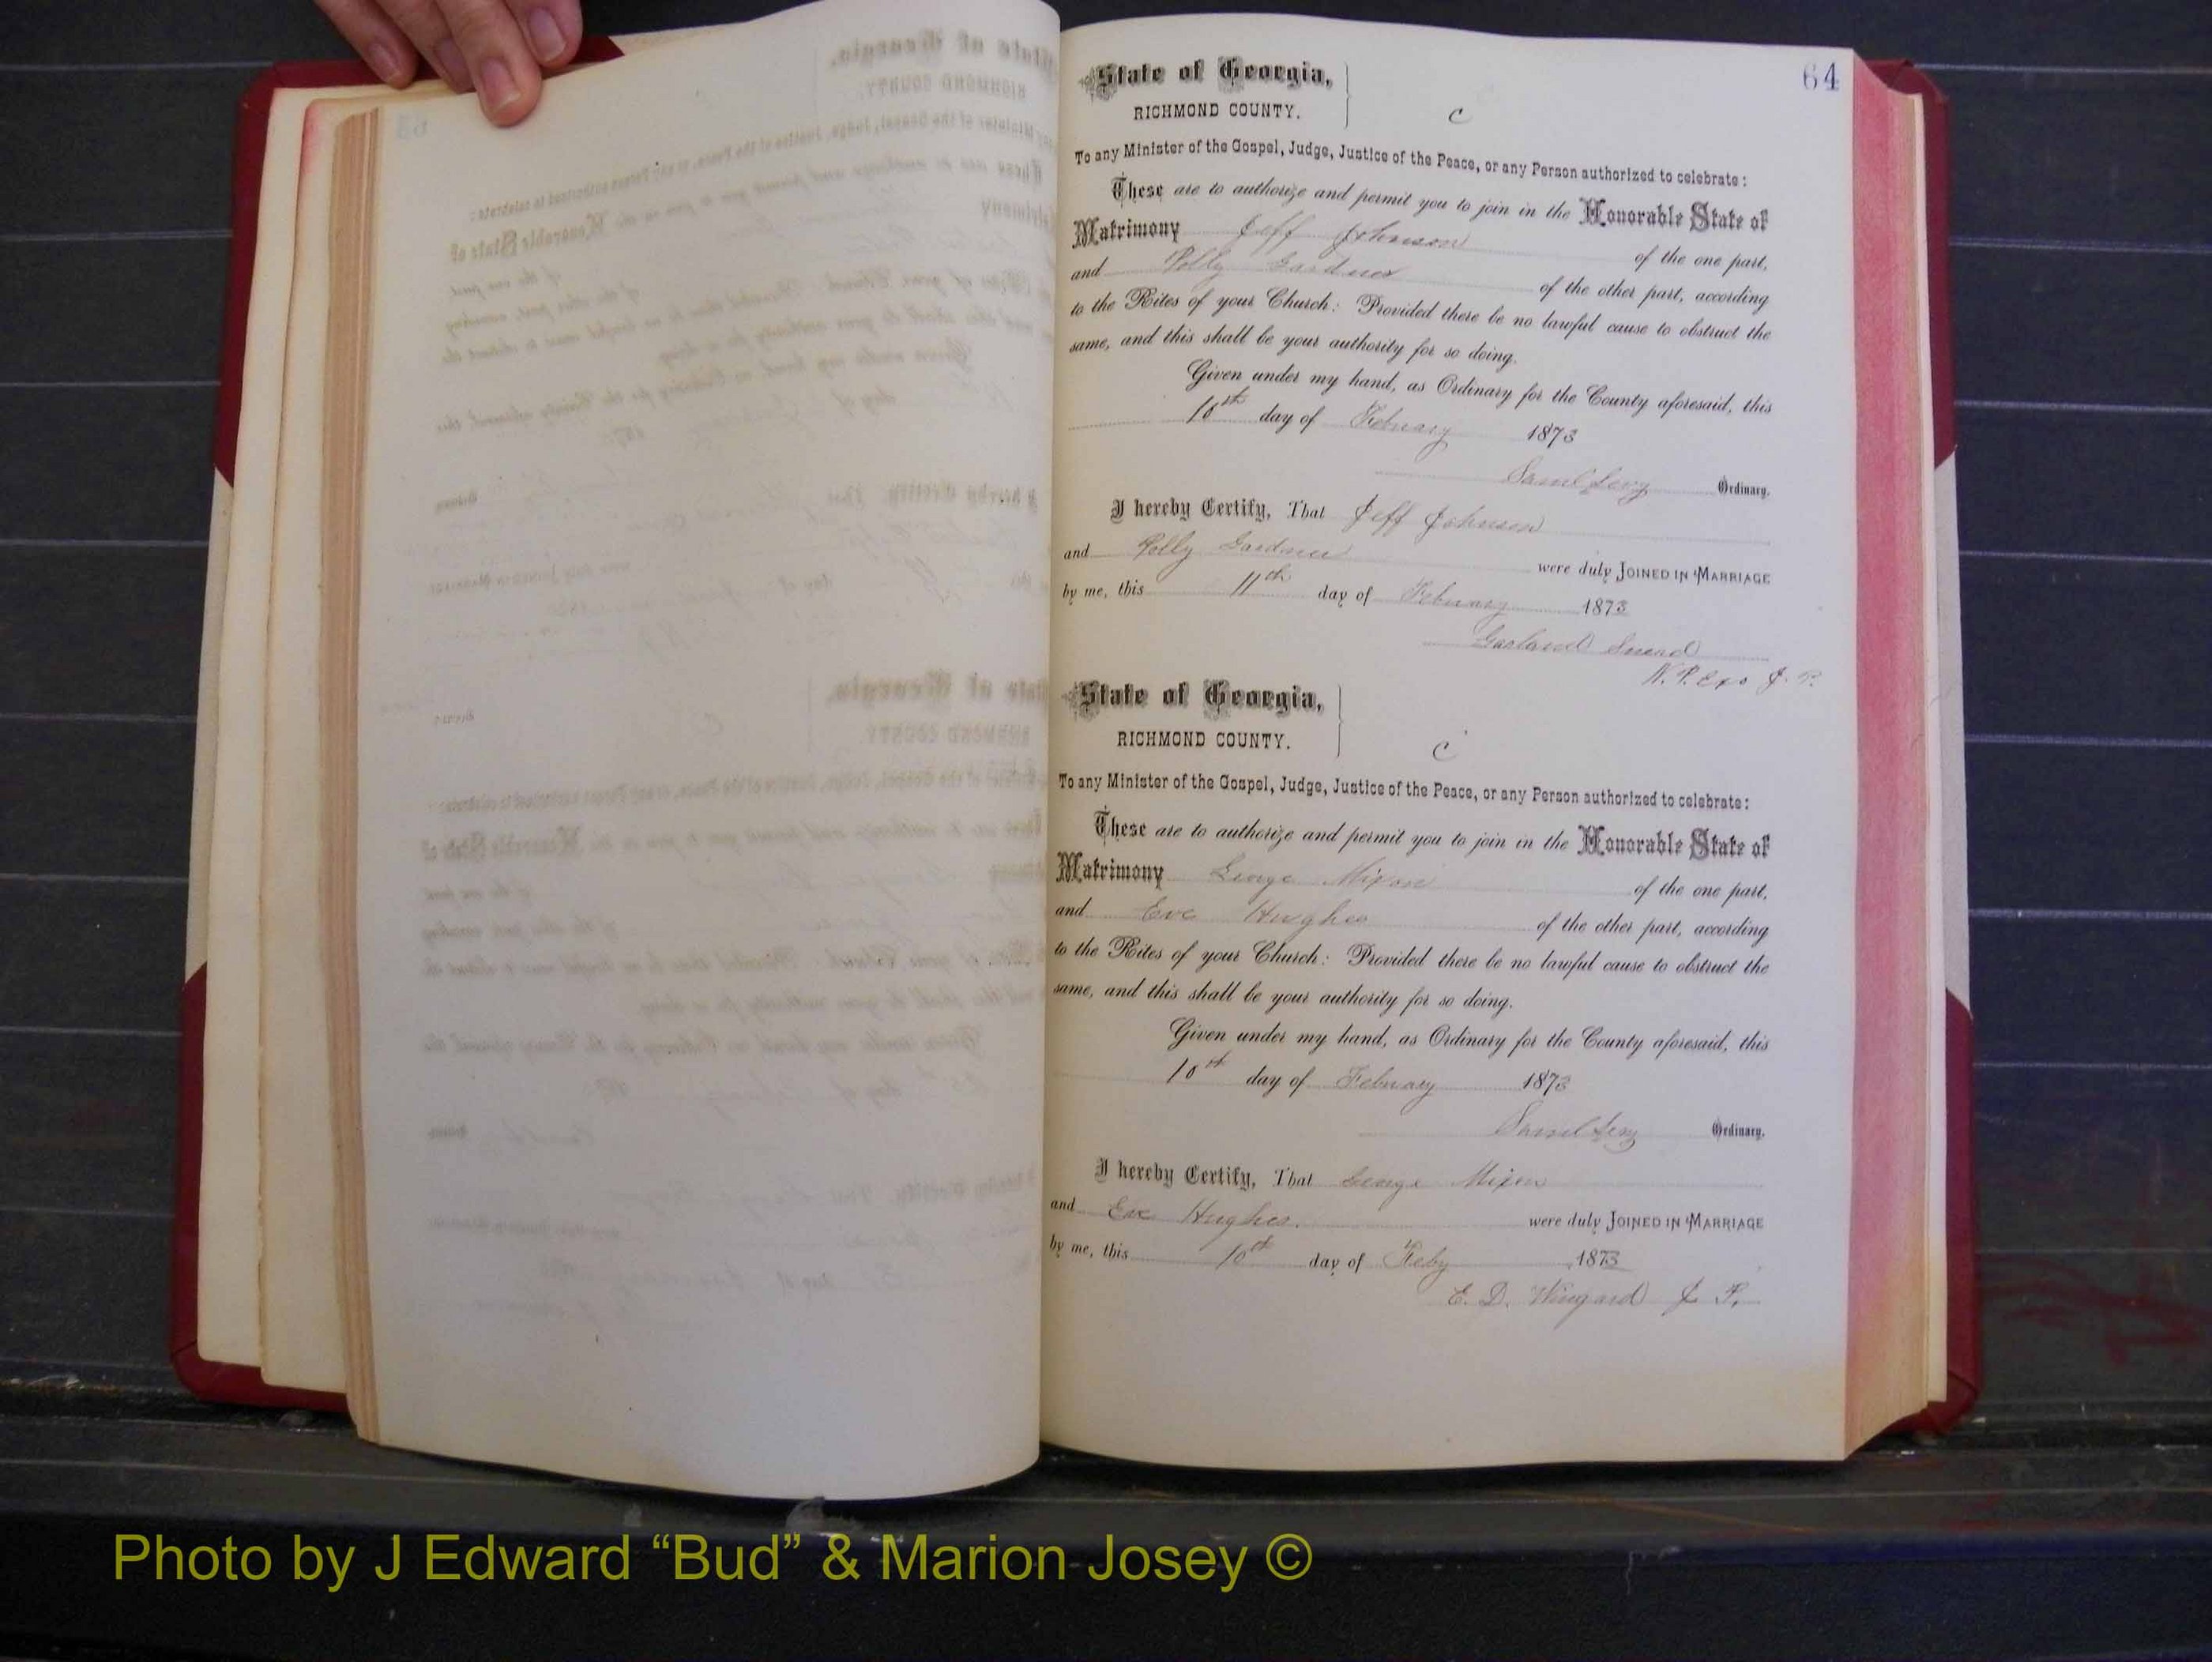 64
State of Georgia,
RICHMOND COUNTY.
C
To any Minister of the Gospel, Judge, Justice of the Peace, or any Person authorized to celebrate:
These are to authorize and permit you to join in the Honorable State of
Matrimony Jeff Johnson of the one part,
and Polly Gardner of the other part, according
to the Rites of your Church: Provided there be no lawful cause to obstruct the
same, and this shall be your authority for so doing.
Given under my hand, as Ordinary for the County aforesaid, this
10th day of February 1873
Saml Levy Ordinary.
I hereby Certify, That Jeff Johnson
and Polly Gardner were duly JOINED IN MARRIAGE
by me, this 11th day of February 1873
Garland Snead
N. P. Exo J. P.
State of Georgia,
RICHMOND COUNTY.
C
To any Minister of the Gospel, Judge, Justice of the Peace, or any Person authorized to celebrate:
These are to authorize and permit you to join in the Honorable State of
Matrimony George Mixon of the one part,
and Eve Hughes of the other part, according
to the Rites of your Church: Provided there be no lawful cause to obstruct the
same, and this shall be your authority for so doing.
Given under my hand, as Ordinary for the County aforesaid, this
10th day of February 1873
Saml Levy Ordinary.
I hereby Certify, That George Mixon
and Eve Hughes. were duly JOINED IN MARRIAGE
by me, this 10th day of Feby 1873
E. D. Wingard J. P.
Photo by J Edward “Bud” & Marion Josey ©